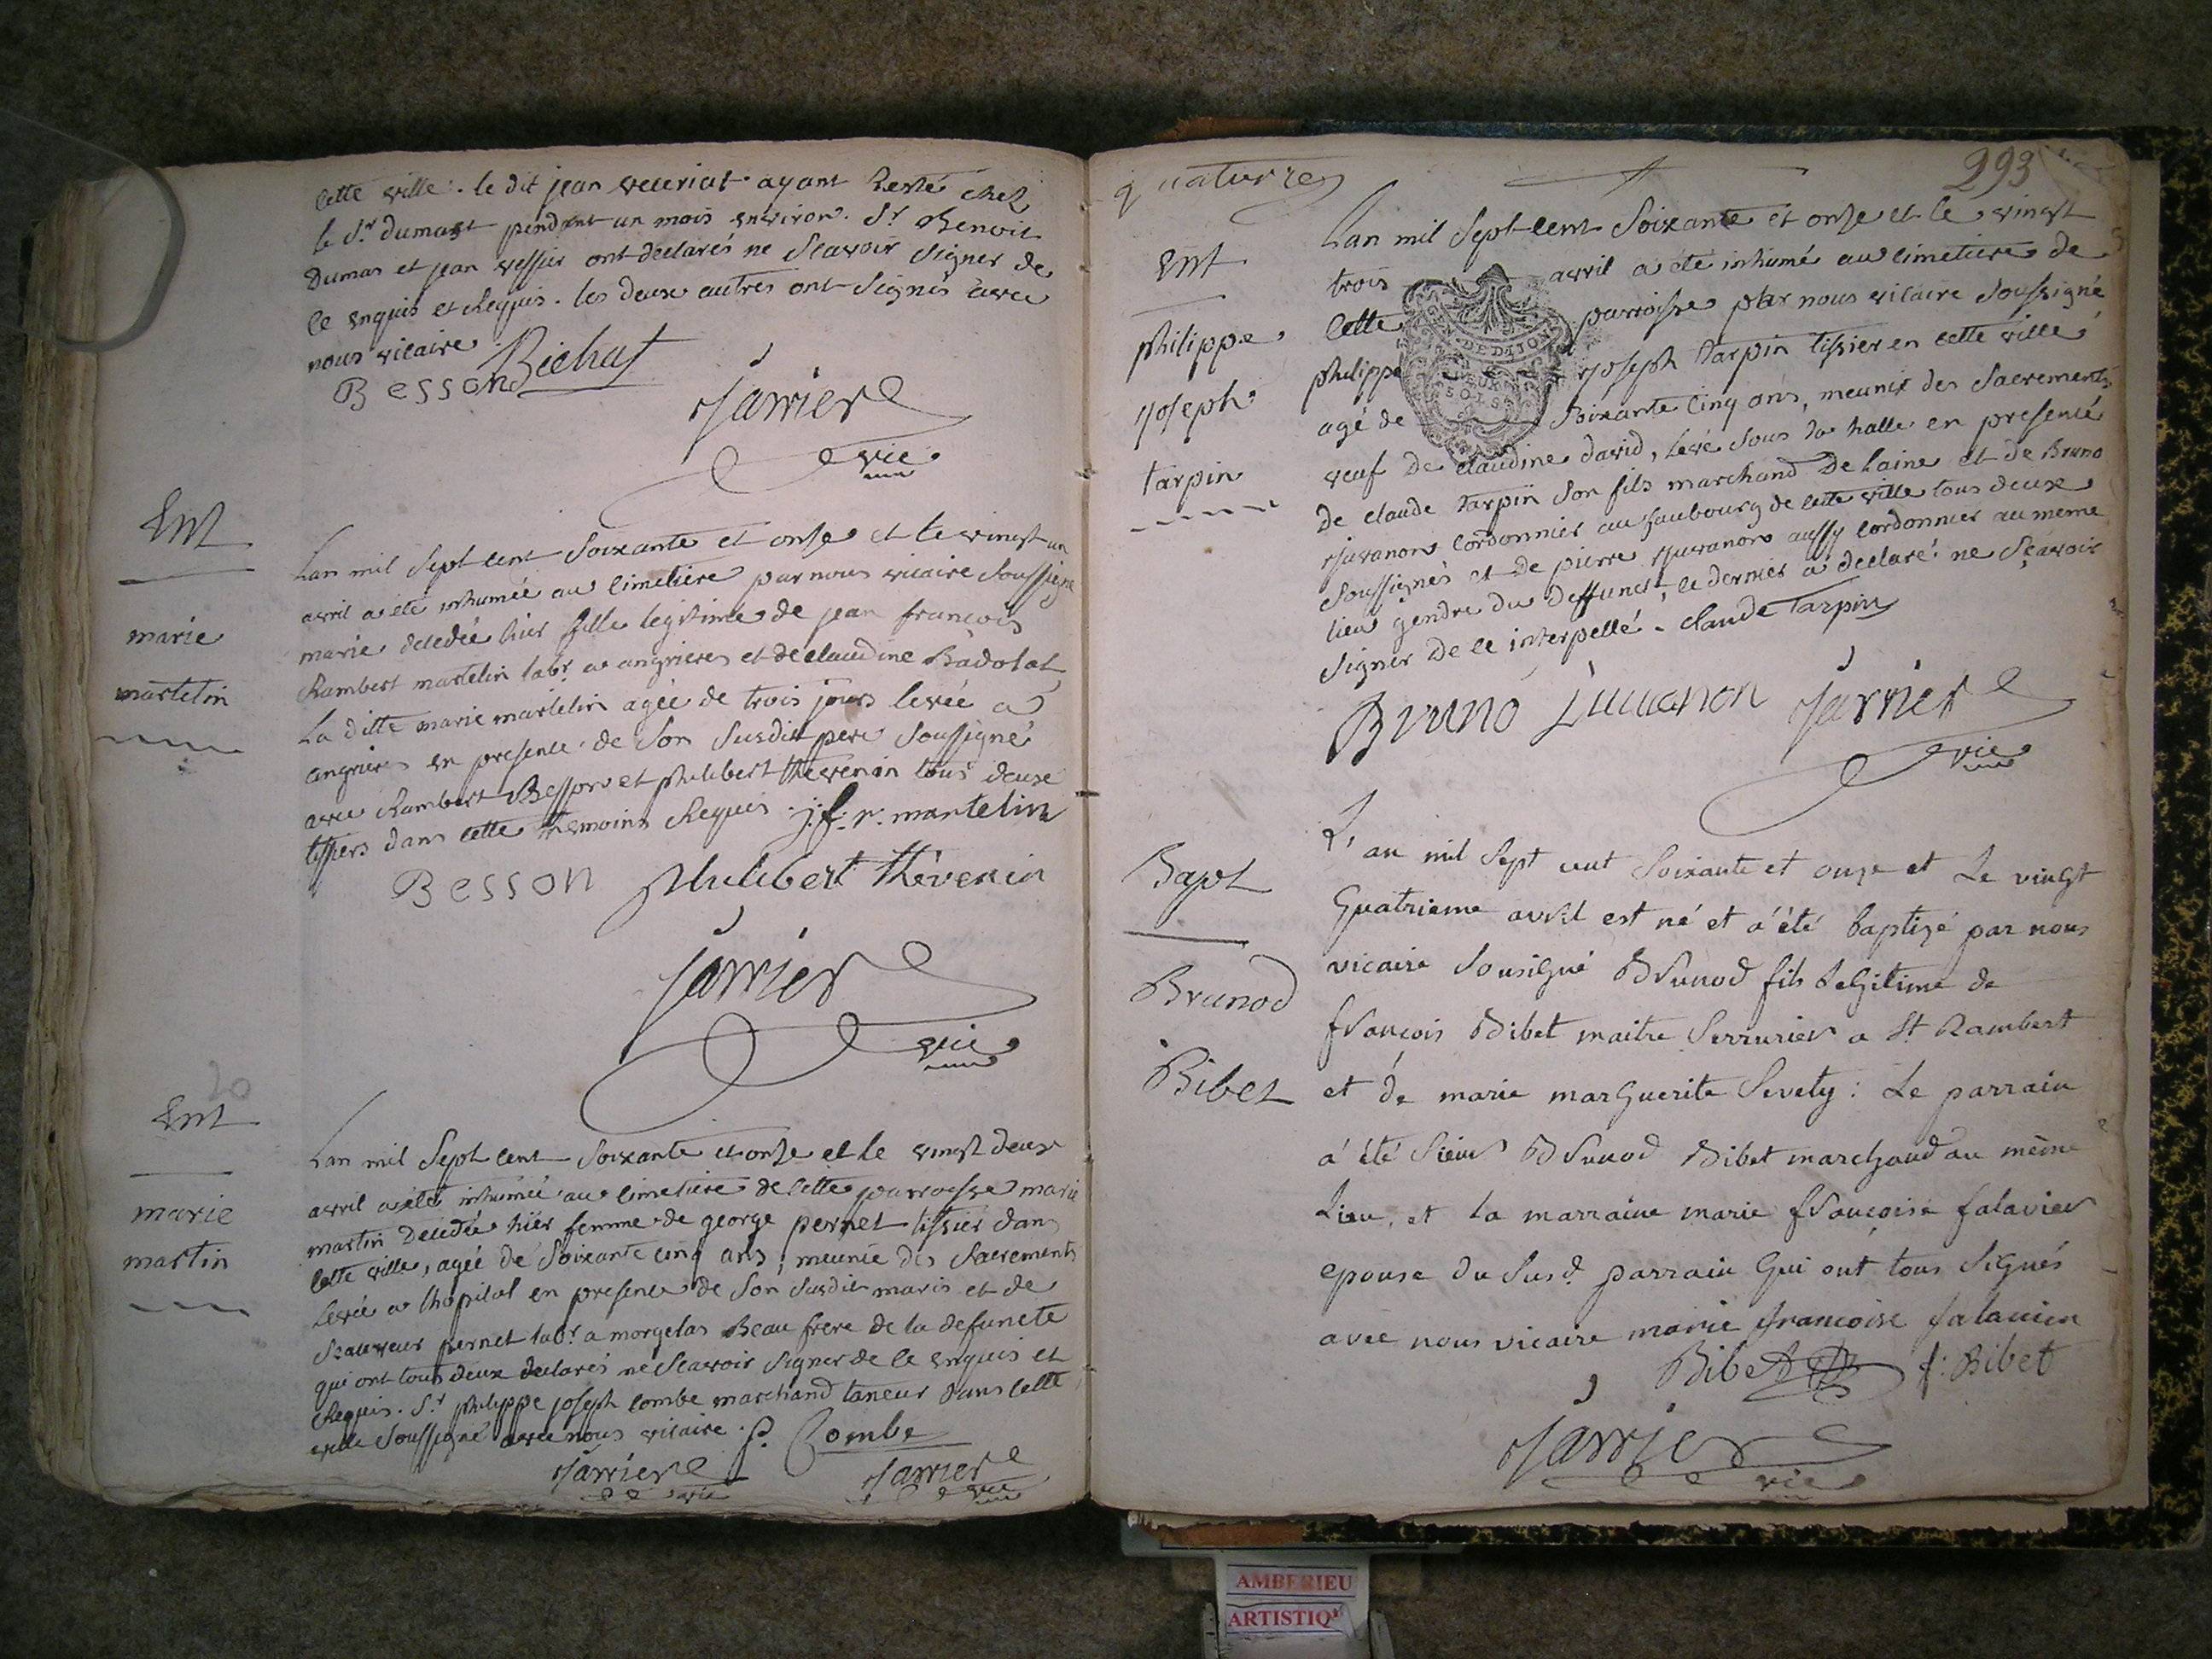 cette ville. le dit jean veceriat ayant resté chez
le Sr. dumast pendant un mois environ. Sr benoit
dumas et jean vessier ont déclarés ne Scavoir Signer de
ce enquis et Requis. les deux autres ont Signés avec
nous vicaire
Besson Bichat
Jarrier
vic
Ent
marie
martelin
Lan mil Sept cent Soixante et onze et le vingt un
avril a été inhumée au cimetiere par nous vicaire Soussigné
marie decedée hier fille legitime de jean françois
Rambert martelin labr. a angrieres et de claudine Badolat
La ditte marie martelin agée de trois jours levée a
angrieres en presence de Son Susdit pere Soussigné
avec Rambert Besson et philibert thevenin tous deux
tissiers dans cette temoins Requis. j. f. r. martelin
Besson philibert thévenin
Jarrier
vic
20
Ent
marie
martin
Lan mil Sept cent Soixante et onze et le vingt deux
avril a été inhumée au cimetiere de cette parroisse marie
martin decedée hier femme de george pernet tissier dans
cette ville, agée de Soixante cinq ans, meunie des Sacrements
levée a lhopital en presence de Son Susdit maris et de
Sauveur pernet labr. a morgelas Beau frere de la defuncte
qui ont tous deux declarés ne Scavoir Signer de ce enquis et
Requis. Sr philippe joseph combe marchand taneur dans cette
ville Soussigné avec nous vicaire. P. Combe
Jarrier Jarrier
vic vic
quatorze
293
Ent
philippe
joseph
tarpin
Lan mil Sept cent Soixante et onze et le vingt
trois avril a été inhumé au cimetiere de
cette parroisse par nous vicaire Soussigné
philippe joseph tarpin tissier en cette ville
agé de Soixante cinq ans, meunie des Sacrements
veuf de claudine david, levé Sous la halle en presence
de claude tarpin Son fils marchand de laine et de Bruno
juvanon cordonnier au faubourg de cette ville tous deux
Soussignés et de pierre juvanon aussy cordonnier au meme
lieu gendre du deffunct, ce dernier a declaré ne Sçavoir
Signer de ce interpellé. claude tarpin
Bruno Juvanon Jarrier
vic
Bapt
Brunod
Bibet
L'an mil Sept cent Soixante et onze et Le vingt
Quatrieme avril est né et a été baptizé par nous
vicaire Sousigné Brunod fils Legitime de
françois Bibet maitre Serrurier a St Rambert
et de marie marguerite Sevety: Le parrain
a été Sieur Brunod Bibet marchand au même
Lieu, et la marraine marie françoise falavier
epouse du Susd. parrain Qui ont tous Signés
avec nous vicaire marie francoise falavier
Bibet f: Bibet
Jarrier
vic
AMBERIEU
ARTISTIQ